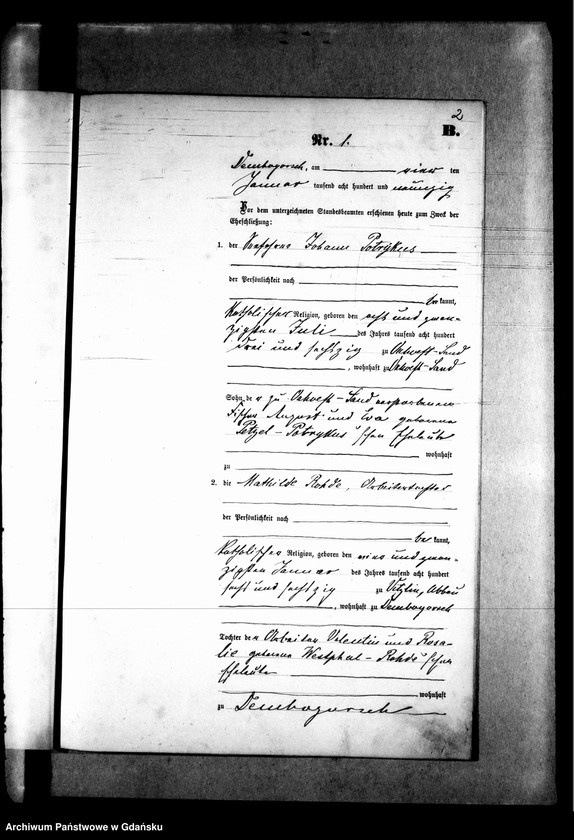 2
B.
Nr. 1.
Dembogorsch, am vier ten
Januar tausend acht hundert und neunzig
Vor dem unterzeichneten Standesbeamten erschienen heute zum Zweck der
Eheschließung:
1. der Johann Potrykus
der Persönlichkeit nach
be kannt,
katholischer Religion, geboren den acht und zwan-
zigsten Juli des Jahres tausend acht hundert
drei und sechzig zu Oxhoeft-Sand
, wohnhaft zu Oxhoeft-Sand
Sohn de r zu Oxhoeft-Sand verstorbenen
Fischer August und Eva geborene
Petzel-Potrykus'schen Eheleute
wohnhaft
zu
2. die Mathilde Rohde, Arbeitertochter
der Persönlichkeit nach
be kannt,
katholischer Religion, geboren den ein und zwan-
zigsten Januar des Jahres tausend acht hundert
sechs und sechszig zu Abbau
, wohnhaft zu Dembogorsch
Tochter der Arbeiter Valentin und Rosa-
lie geborene Westphal-Rohde'schen
Eheleute
wohnhaft
zu Dembogorsch
Archiwum Państwowe w Gdańsku